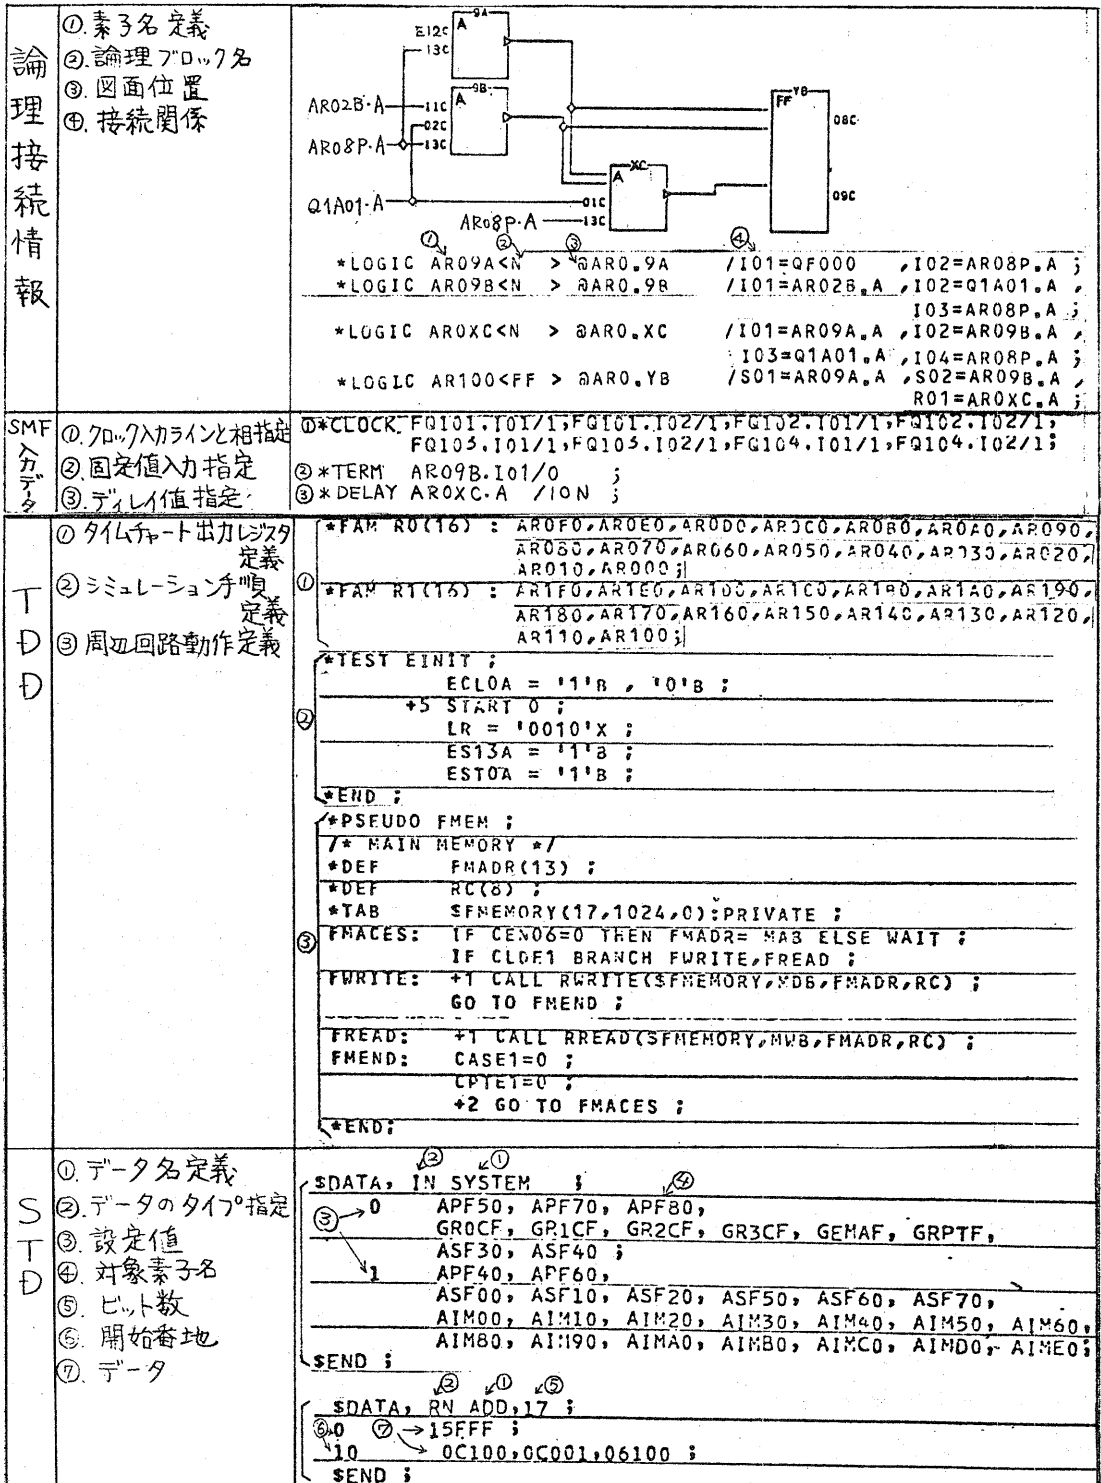 論理接続情報
①.素子名定義
②.論理ブロック名
③.図面位置
④.接続関係
9A
A
E12C
13C
9B
A
AR02B.A
11C
02C
AR08P.A
13C
XC
A
Q1A01.A
01C
AR08P.A
13C
YB
FF
08C
09C
① ② ③ ④
*LOGIC AR09A<N > @AR0.9A /I01=QF000 ,I02=AR08P.A ;
*LOGIC AR09B<N > @AR0.9B /I01=AR02B.A ,I02=Q1A01.A ,
I03=AR08P.A ;
*LOGIC AR0XC<N > @AR0.XC /I01=AR09A.A ,I02=AR09B.A ,
I03=Q1A01.A ,I04=AR08P.A ;
*LOGIC AR100<FF > @AR0.YB /S01=AR09A.A ,S02=AR09B.A ,
R01=AR0XC.A ;
SMF入力データ
①.クロック入力ラインと相指定
②.固定値入力指定
③.ディレイ値指定
①*CLOCK FQ101.I01/1,FQ101.I02/1,FQ102.I01/1,FQ102.I02/1,
FQ103.I01/1,FQ103.I02/1,FQ104.I01/1,FQ104.I02/1;
②*TERM AR09B.I01/0 ;
③*DELAY AR0XC.A /10N ;
TDD
①タイムチャート出力レジスタ
定義
②シミュレーション手順
定義
③周辺回路動作定義
①
*FAM R0(16) : AR0F0,AR0E0,AR0D0,AR0C0,AR0B0,AR0A0,AR090,
AR080,AR070,AR060,AR050,AR040,AR030,AR020,
AR010,AR000;
*FAM R1(16) : AR1F0,AR1E0,AR1D0,AR1C0,AR1B0,AR1A0,AR190,
AR180,AR170,AR160,AR150,AR140,AR130,AR120,
AR110,AR100;
②
*TEST EINIT ;
ECL0A = '1'B , '0'B ;
+5 START 0 ;
LR = '0010'X ;
ES13A = '1'B ;
EST0A = '1'B ;
*END ;
③
*PSEUDO FMEM ;
/* MAIN MEMORY */
*DEF FMADR(13) ;
*DEF RC(8) ;
*TAB $FMEMORY(17,1024,0):PRIVATE ;
FMACES: IF CEN06=0 THEN FMADR= MAB ELSE WAIT ;
IF CLDE1 BRANCH FWRITE,FREAD ;
FWRITE: +1 CALL RWRITE($FMEMORY,MDB,FMADR,RC) ;
GO TO FMEND ;
FREAD: +1 CALL RREAD($FMEMORY,MWB,FMADR,RC) ;
FMEND: CASE1=0 ;
CPTE1=0 ;
+2 GO TO FMACES ;
*END;
STD
①.データ名定義
②.データのタイプ指定
③.設定値
④.対象素子名
⑤.ビット数
⑥.開始番地
⑦.データ
② ①
$DATA, IN SYSTEM ;
④
③ 0 APF50, APF70, APF80,
GR0CF, GR1CF, GR2CF, GR3CF, GEMAF, GRPTF,
ASF30, ASF40 ;
1 APF40, APF60,
ASF00, ASF10, ASF20, ASF50, ASF60, ASF70,
AIM00, AIM10, AIM20, AIM30, AIM40, AIM50, AIM60,
AIM80, AIM90, AIMA0, AIMB0, AIMC0, AIMD0, AIME0;
$END ;
② ① ⑤
$DATA, RN ADD,17 ;
⑥ 0 ⑦ 15FFF ;
10 0C100,0C001,06100 ;
$END ;